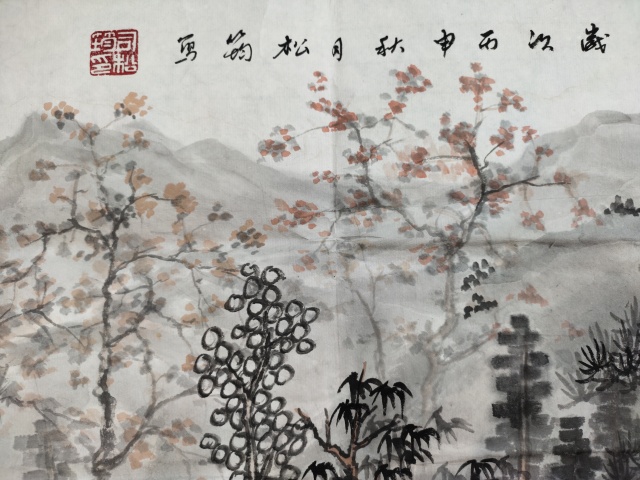 歲次丙申秋月松筠寫
司松印